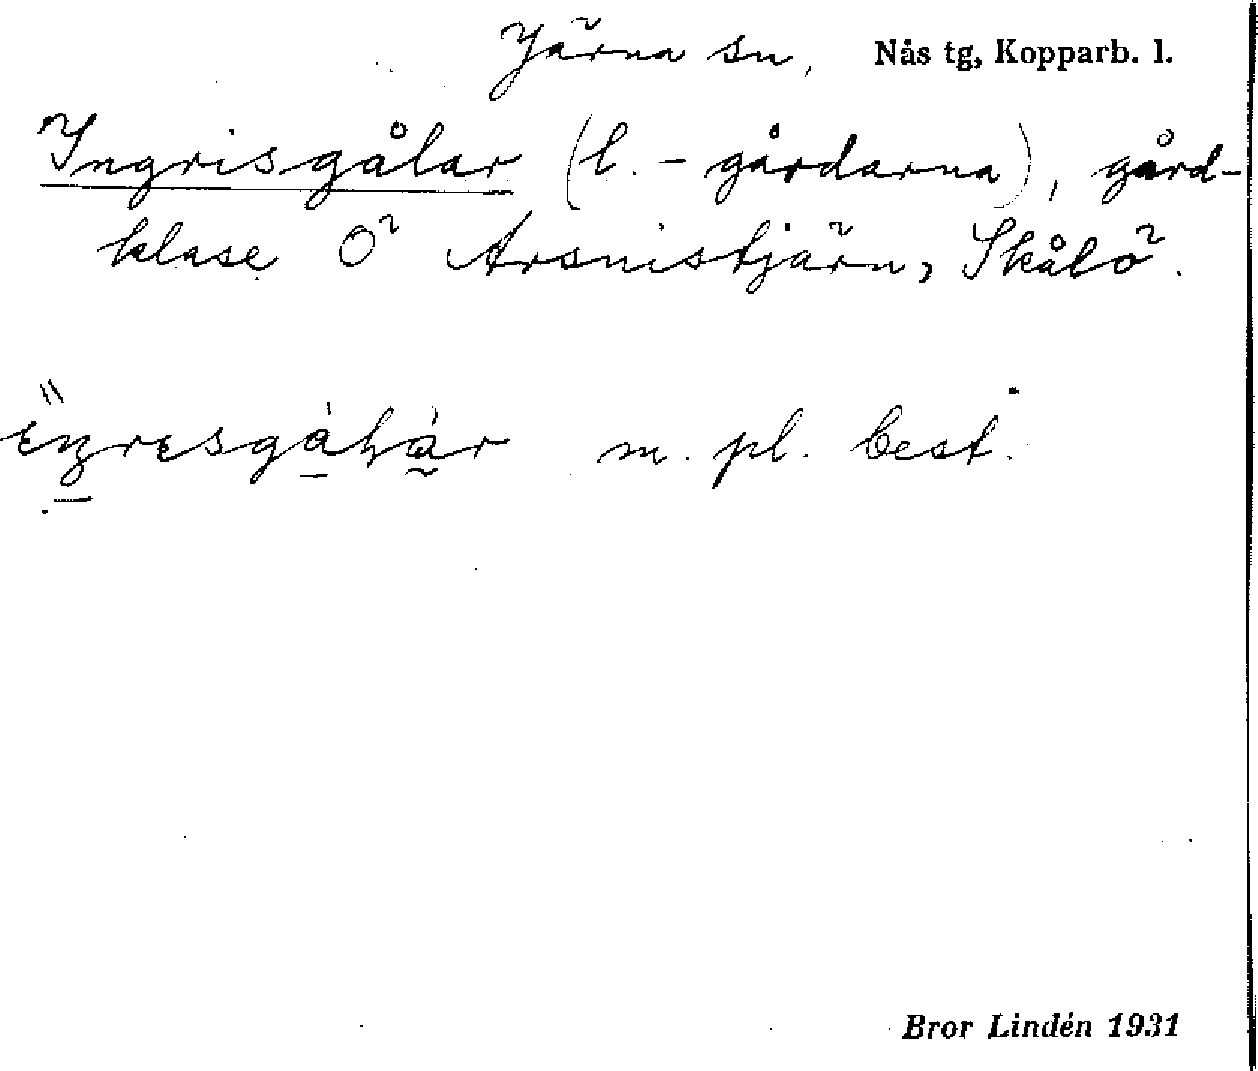 Järna sn, Nås tg, Kopparb. l.
Ingrisgålar (l. -gårdarna), gård-
klase Ö Arsnistjärn, Skålö.
m. pl. best.
Bror Lindén 1931